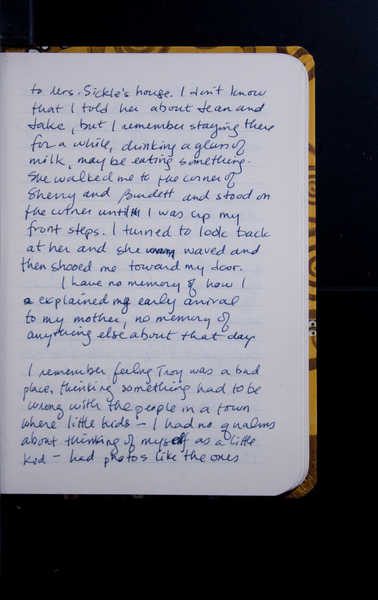 to Mrs. Sickle's house. I don't know
that I told her about Jean and
Jake, but I remember staying there
for a while, drinking a glass of
milk, may be eating something.
She walked me to the corner of
Sherry and Burdett and stood on
the corner until I was up my
front steps. I turned to look back
at her and she waved and
then shooed me toward my door.
I have no memory of how I
explained my early arrival
to my mother, no memory of
anything else about that day.
I remember feeling Troy was a bad
place, thinking something had to be
wrong with the people in a town
where little kids – I had no qualms
about thinking of myself as a little
kid – had photos like the ones